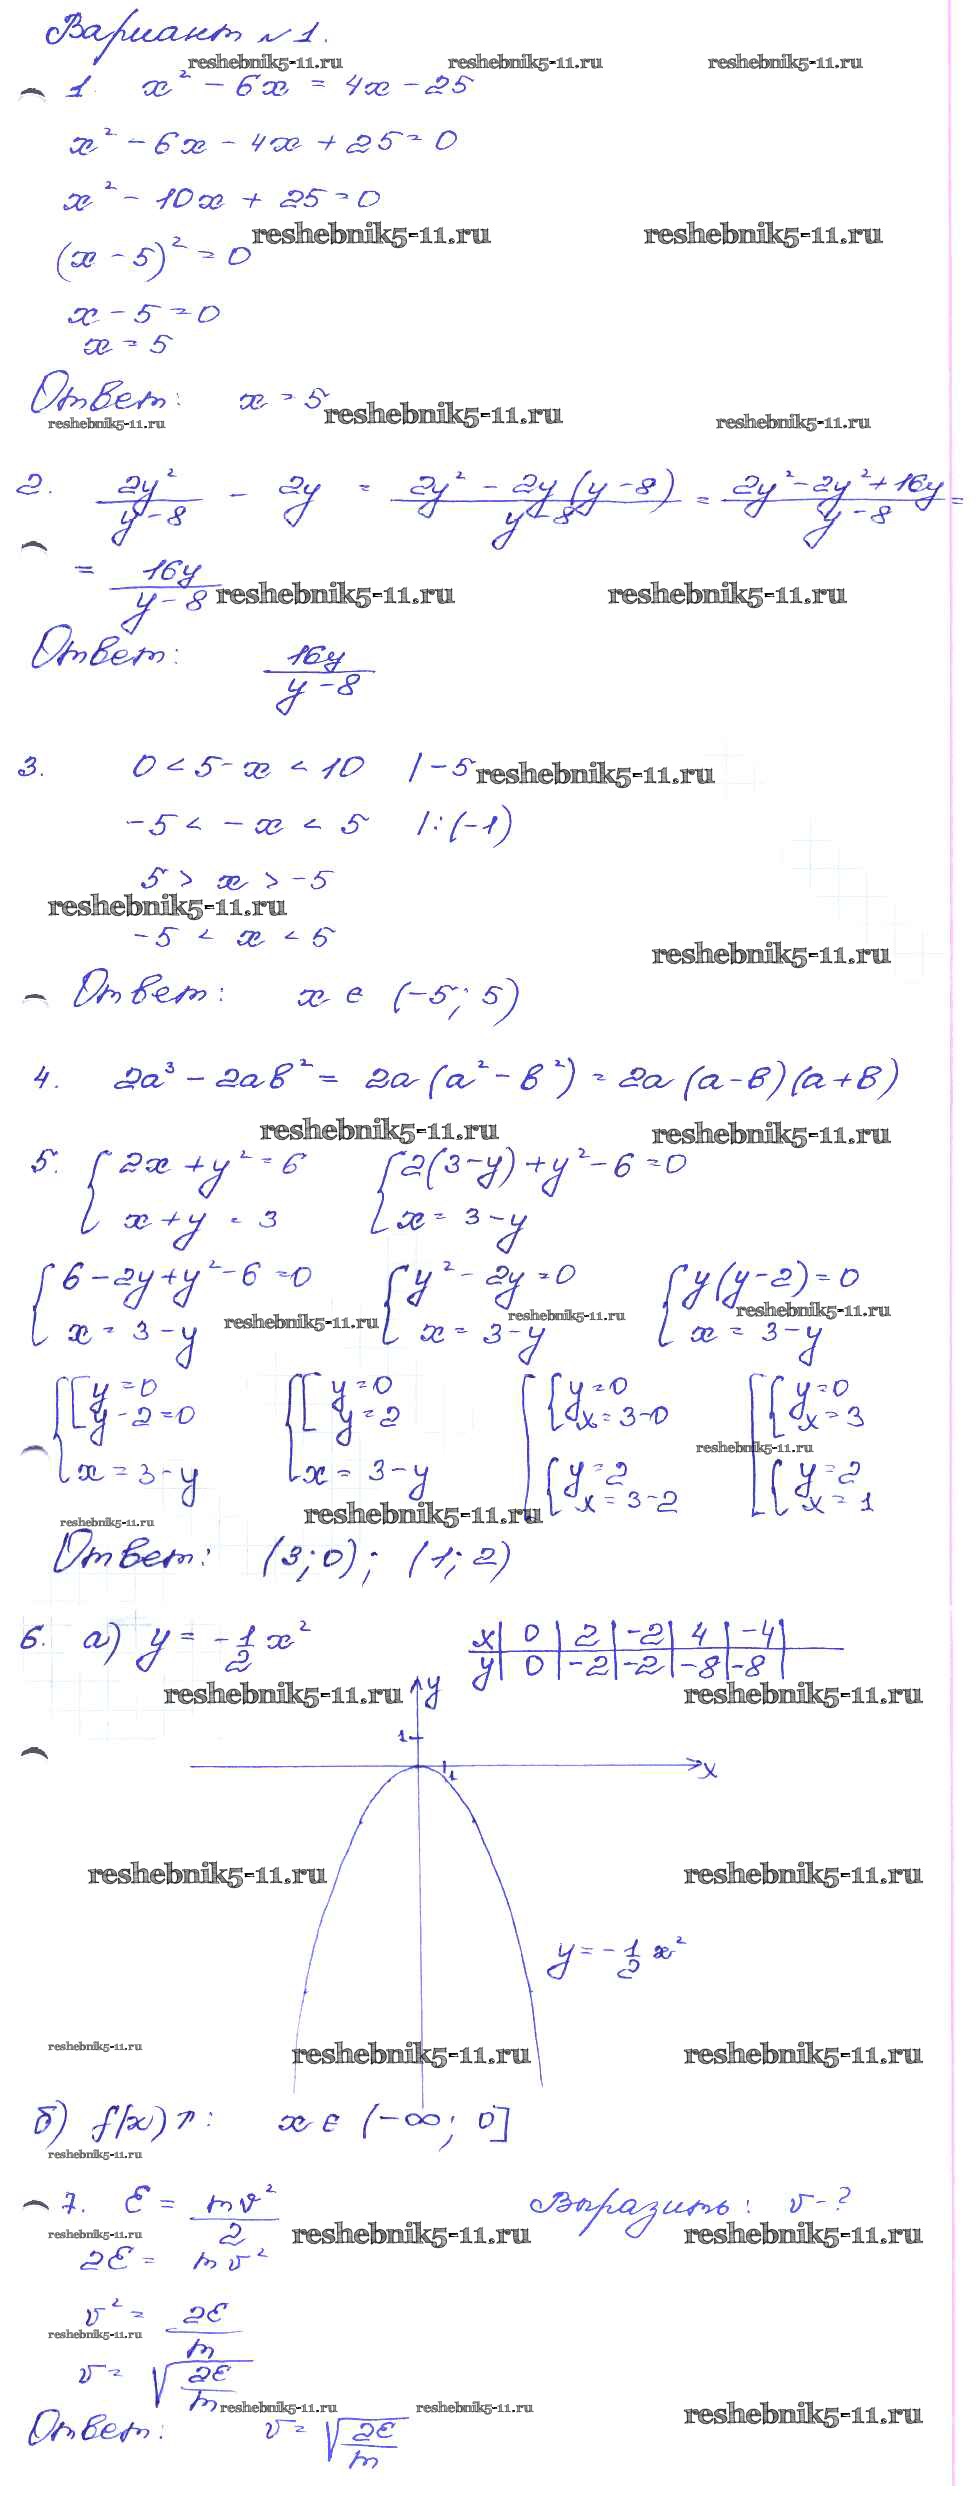 Вариант №1.
reshebnik5-11.ru reshebnik5-11.ru reshebnik5-11.ru
1. x² - 6x = 4x - 25
x² - 6x - 4x + 25 = 0
x² - 10x + 25 = 0
reshebnik5-11.ru reshebnik5-11.ru
(x - 5)² = 0
x - 5 = 0
x = 5
Ответ: x = 5
reshebnik5-11.ru reshebnik5-11.ru reshebnik5-11.ru
2. 2y²/(y-8) - 2y = (2y² - 2y(y-8))/(y-8) = (2y² - 2y² + 16y)/(y-8) =
= 16y/(y-8)
reshebnik5-11.ru reshebnik5-11.ru
Ответ: 16y/(y-8)
3. 0 < 5 - x < 10 | -5
reshebnik5-11.ru
-5 < -x < 5 |:(-1)
5 > x > -5
reshebnik5-11.ru
-5 < x < 5
reshebnik5-11.ru
Ответ: x ∈ (-5; 5)
4. 2a³ - 2ab² = 2a(a² - b²) = 2a(a-b)(a+b)
reshebnik5-11.ru reshebnik5-11.ru
5. { 2x + y² = 6 { 2(3-y) + y² - 6 = 0
x + y = 3 x = 3 - y
{ 6 - 2y + y² - 6 = 0 { y² - 2y = 0 { y(y-2) = 0
reshebnik5-11.ru reshebnik5-11.ru reshebnik5-11.ru
x = 3 - y x = 3 - y x = 3 - y
{ [ y = 0 { [ y = 0 [ { y = 0 [ { y = 0
y - 2 = 0 y = 2 x = 3 - 0 x = 3
reshebnik5-11.ru
x = 3 - y x = 3 - y { y = 2 { y = 2
x = 3 - 2 x = 1
reshebnik5-11.ru reshebnik5-11.ru
Ответ: (3; 0); (1; 2)
6. а) y = -1/2 x² x | 0 | 2 | -2 | 4 | -4 |
y | 0 | -2 | -2 | -8 | -8 |
reshebnik5-11.ru y reshebnik5-11.ru
1
1 x
reshebnik5-11.ru reshebnik5-11.ru
y = -1/2 x²
reshebnik5-11.ru reshebnik5-11.ru reshebnik5-11.ru
б) f(x)↗: x ∈ (-∞; 0]
reshebnik5-11.ru
7. E = mv²/2 Выразить: v - ?
reshebnik5-11.ru reshebnik5-11.ru reshebnik5-11.ru
2E = mv²
v² = 2E/m
reshebnik5-11.ru
v = √(2E/m)
reshebnik5-11.ru reshebnik5-11.ru reshebnik5-11.ru
Ответ: v = √(2E/m)